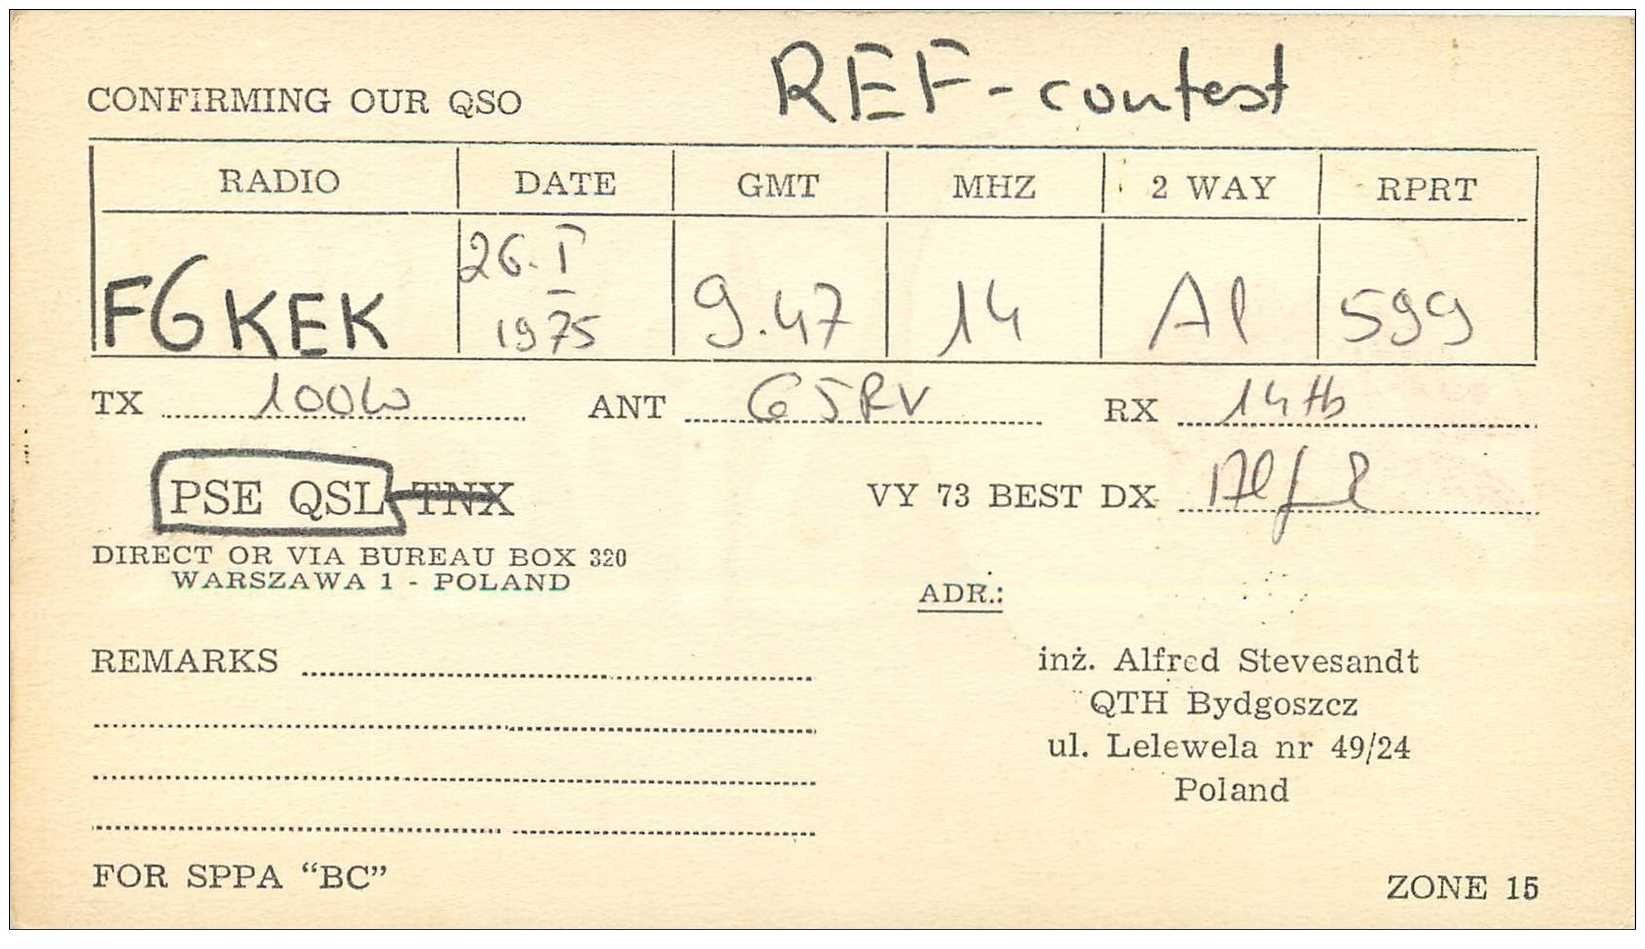 REF-contest
CONFIRMING OUR QSO
RADIO DATE GMT MHZ 2 WAY RPRT
F6KEK 26.I 1975 9.47 14 A1 599
TX 100W ANT G5RV RX 14tb
PSE QSL TNX VY 73 BEST DX Alfred
DIRECT OR VIA BUREAU BOX 320
WARSZAWA 1 - POLAND
ADR.:
REMARKS
inż. Alfred Stevesandt
QTH Bydgoszcz
ul. Lelewela nr 49/24
Poland
FOR SPPA "BC"
ZONE 15